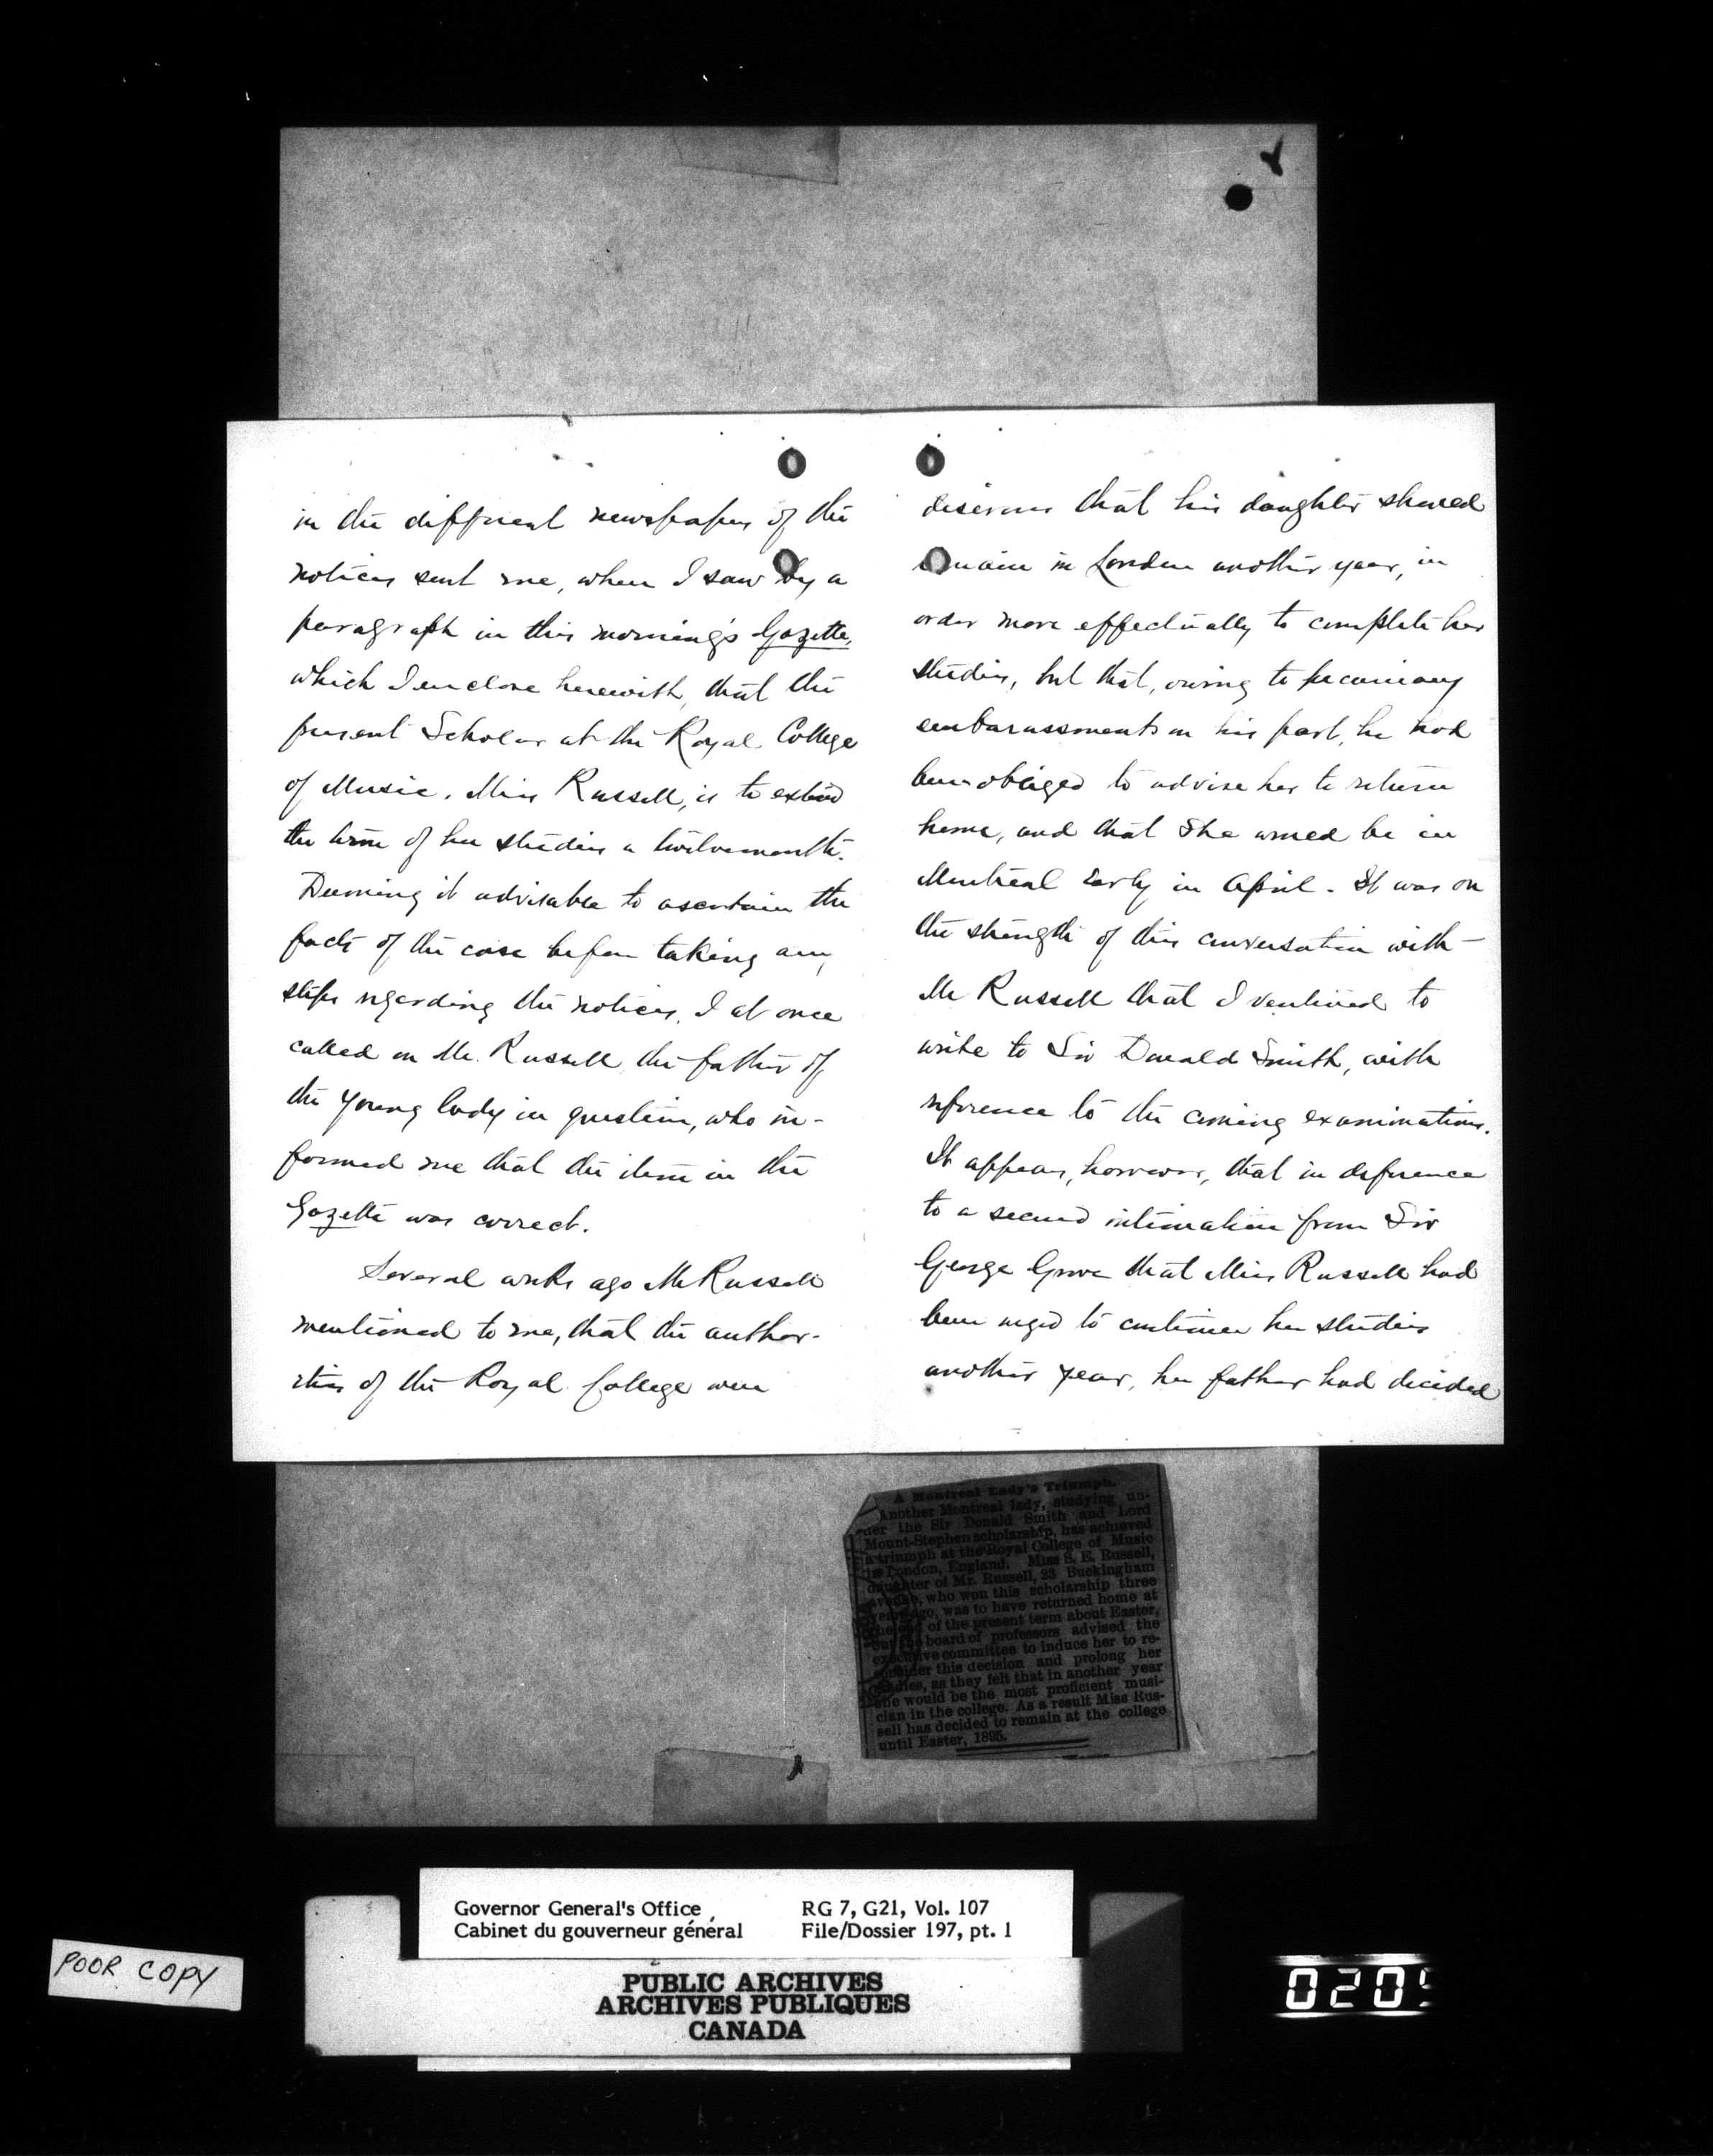 in the different newspapers of the
notices sent me, when I saw by a
paragraph in this morning's Gazette,
which I enclose herewith, that the
present Scholar at the Royal College
of Music, Miss Russell, is to extend
the term of her studies a twelvemonth.
Deeming it advisable to ascertain the
facts of the case before taking any
steps regarding the notices, I at once
called on Mr. Russell, the father of
the young lady in question, who in-
formed me that the item in the
Gazette was correct.
Several weeks ago Mr Russell
mentioned to me, that the author-
ities of the Royal College were
desirous that his daughter should
remain in London another year, in
order more effectually to complete her
studies, but that, owing to pecuniary
embarassments on his part, he had
been obliged to advise her to return
home, and that she would be in
Montreal early in April. It was on
the strength of this conversation with
Mr Russell that I ventured to
write to Sir Donald Smith, with
reference to the coming examinations.
It appears, however, that in deference
to a second intimation from Sir
George Grove that Miss Russell had
been urged to continue her studies
another year, her father had decided
A Montreal Lady's Triumph.
Another Montreal lady, studying un-
der the Sir Donald Smith and Lord
Mount-Stephen scholarship, has achieved
a triumph at the Royal College of Music
in London, England. Miss S. E. Russell,
daughter of Mr. Russell, 23 Buckingham
avenue, who won this scholarship three
years ago, was to have returned home at
the end of the present term about Easter,
but the board of professors advised the
executive committee to induce her to re-
consider this decision and prolong her
studies, as they felt that in another year
she would be the most proficient musi-
cian in the college. As a result Miss Rus-
sell has decided to remain at the college
until Easter, 1895.
Governor General's Office RG 7, G21, Vol. 107
Cabinet du gouverneur général File/Dossier 197, pt. 1
POOR COPY
PUBLIC ARCHIVES
ARCHIVES PUBLIQUES
CANADA
020